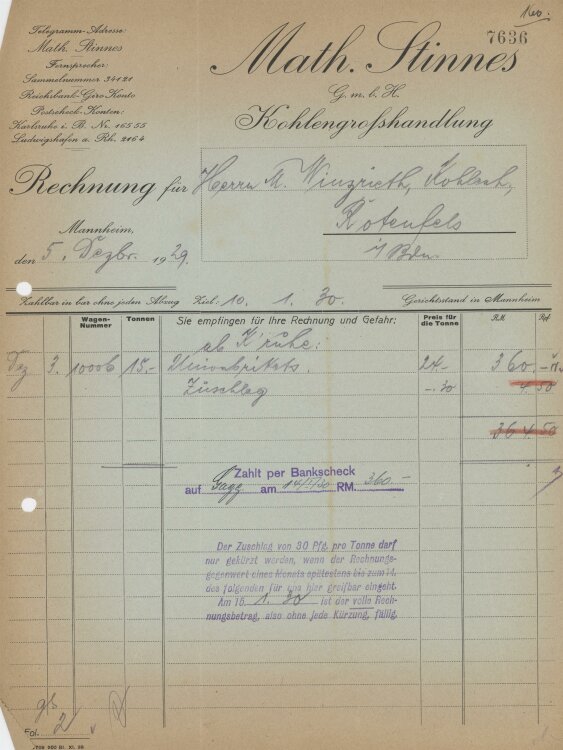 7636
Telegramm-Adresse:
Math. Stinnes
Fernsprecher:
Sammelnummer 34121
Reichsbank-Giro-Konto
Postscheck-Konten:
Karlsruhe i. B. Nr. 16555
Ludwigshafen a. Rh. 2164
Math. Stinnes
G. m. b. H.
Kohlengroßhandlung
Rechnung für Herrn M.
Rotenfels
i/Bdn.
Mannheim,
den 5. Dezbr. 1929.
Zahlbar in bar ohne jeden Abzug Ziel: 10. 1. 30. Gerichtsstand in Mannheim
Wagen-Nummer Tonnen Sie empfingen für Ihre Rechnung und Gefahr: Preis für die Tonne RM. Rpf.
ab K'ruhe:
Dez 3. 10006 15.- Unionbrikets. 24.- 360.-
Zuschlag -.30 4.50
364.50
Zahlt per Bankscheck
auf Gagg. am 14/1/30 RM. 360.-
Der Zuschlag von 30 Pfg. pro Tonne darf
nur gekürzt werden, wenn der Rechnungs-
gegenwert eines Monats spätestens bis zum 14.
des folgenden für uns hier greifbar eingeht.
Am 15. 1. 30 ist der volle Rech-
nungsbetrag, also ohne jede Kürzung, fällig.
Fol. 2